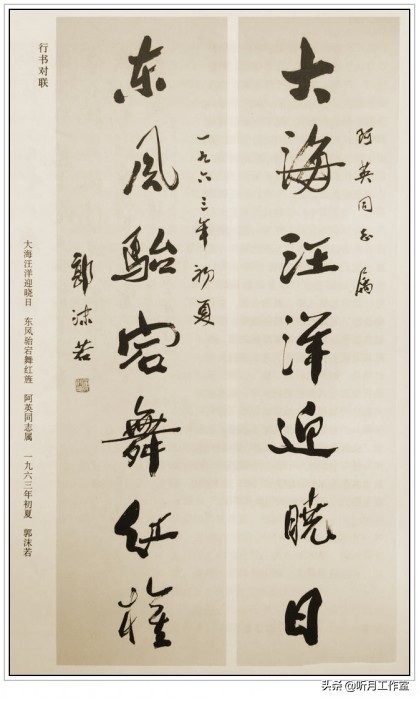 阿英同志属
大海汪洋迎曉日
一九六三年初夏
东風駘宕舞红旌
郭沫若
行书对联
大海汪洋迎晓日 东风骀宕舞红旌 阿英同志属 一九六三年初夏 郭沫若
头条 @听月工作室